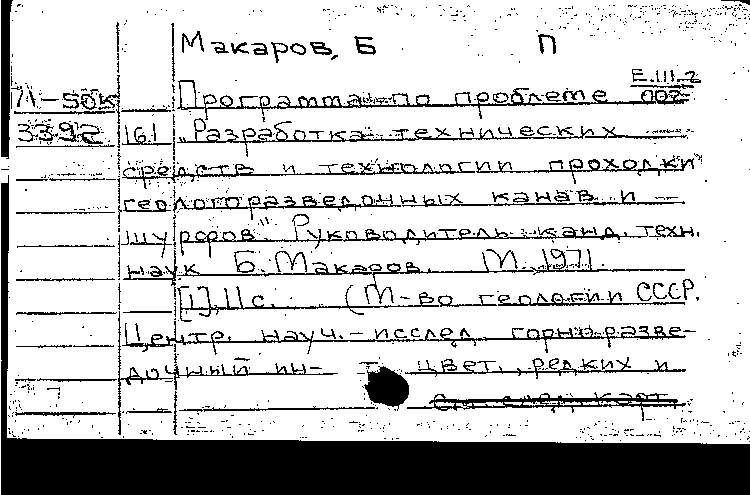 Макаров, Б П
Е.III.2
71-50К Программа по проблеме 002
3392 161 „Разработка технических
средств и технологии проходки
геологоразведочных канав и
шурфов". Руководитель канд. техн.
наук Б. Макаров. М., 1971.
[1], 11 с. (М-во геологии СССР.
Центр. науч.-исслед. горно-разве-
дочный ин-т цвет., редких и
См след. карт